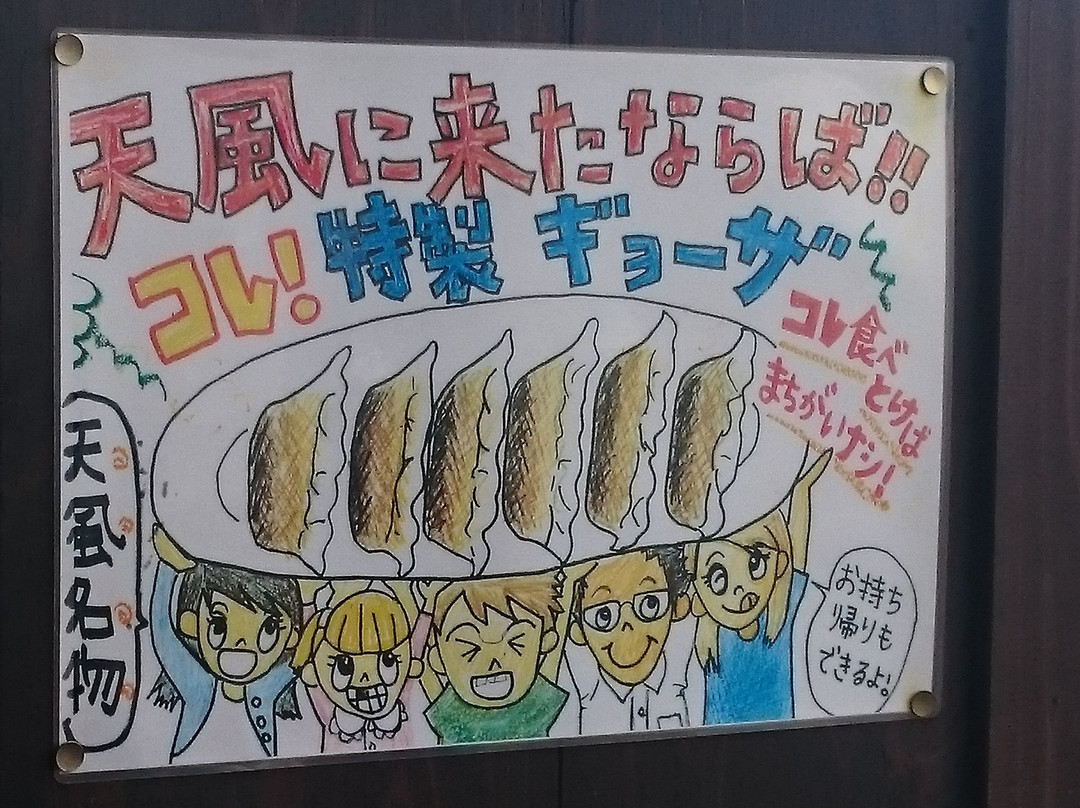 天風に来たならば!!
コレ!特製 ギョーザ
コレ食べ
とけば
まちがいナシ!
天風名物
お持ち
帰りも
できるよ!